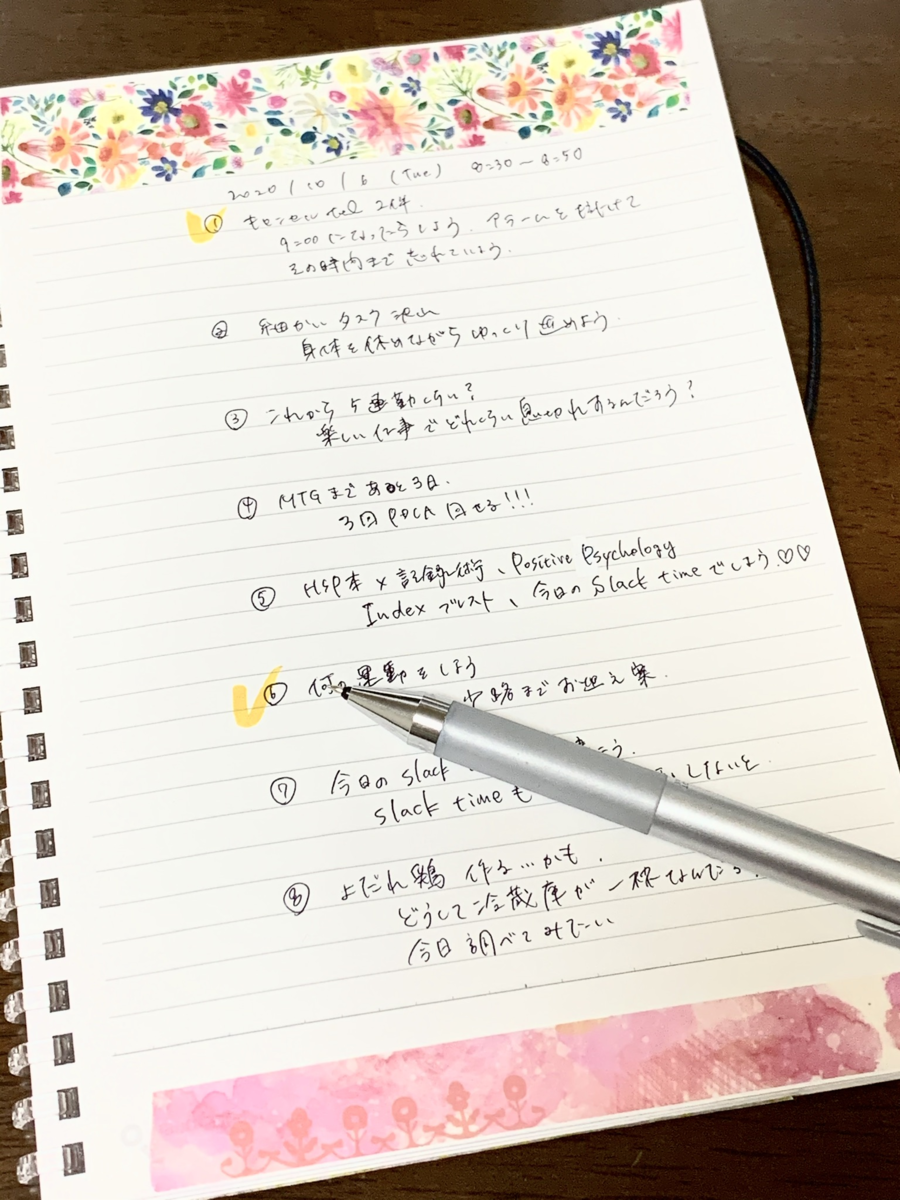 2020/10/6 (Tue) 8:30〜8:50
① キャンセル tel 2件.
9:00になったらしよう. アラームを掛けて
その時間まで忘れていよう.
② 細かいタスク沢山
身体を休めながらゆっくり進めよう.
③ これから 5連勤くらい?
楽しい仕事でどれくらい息切れするんだろう?
④ MTGまであと3日.
3回PDCA回せる!!!
⑤ HSP本×記録術、Positive Psychology
Indexブレスト、今日のSlack timeでしよう.♡♡
⑥ 何の運動をしよう
までお迎え案.
⑦ 今日のslack う.
slack timeも しないと.
⑧ よだれ鶏 作る…かも.
どうして冷蔵庫が一杯なんだろ
今日調べてみたい